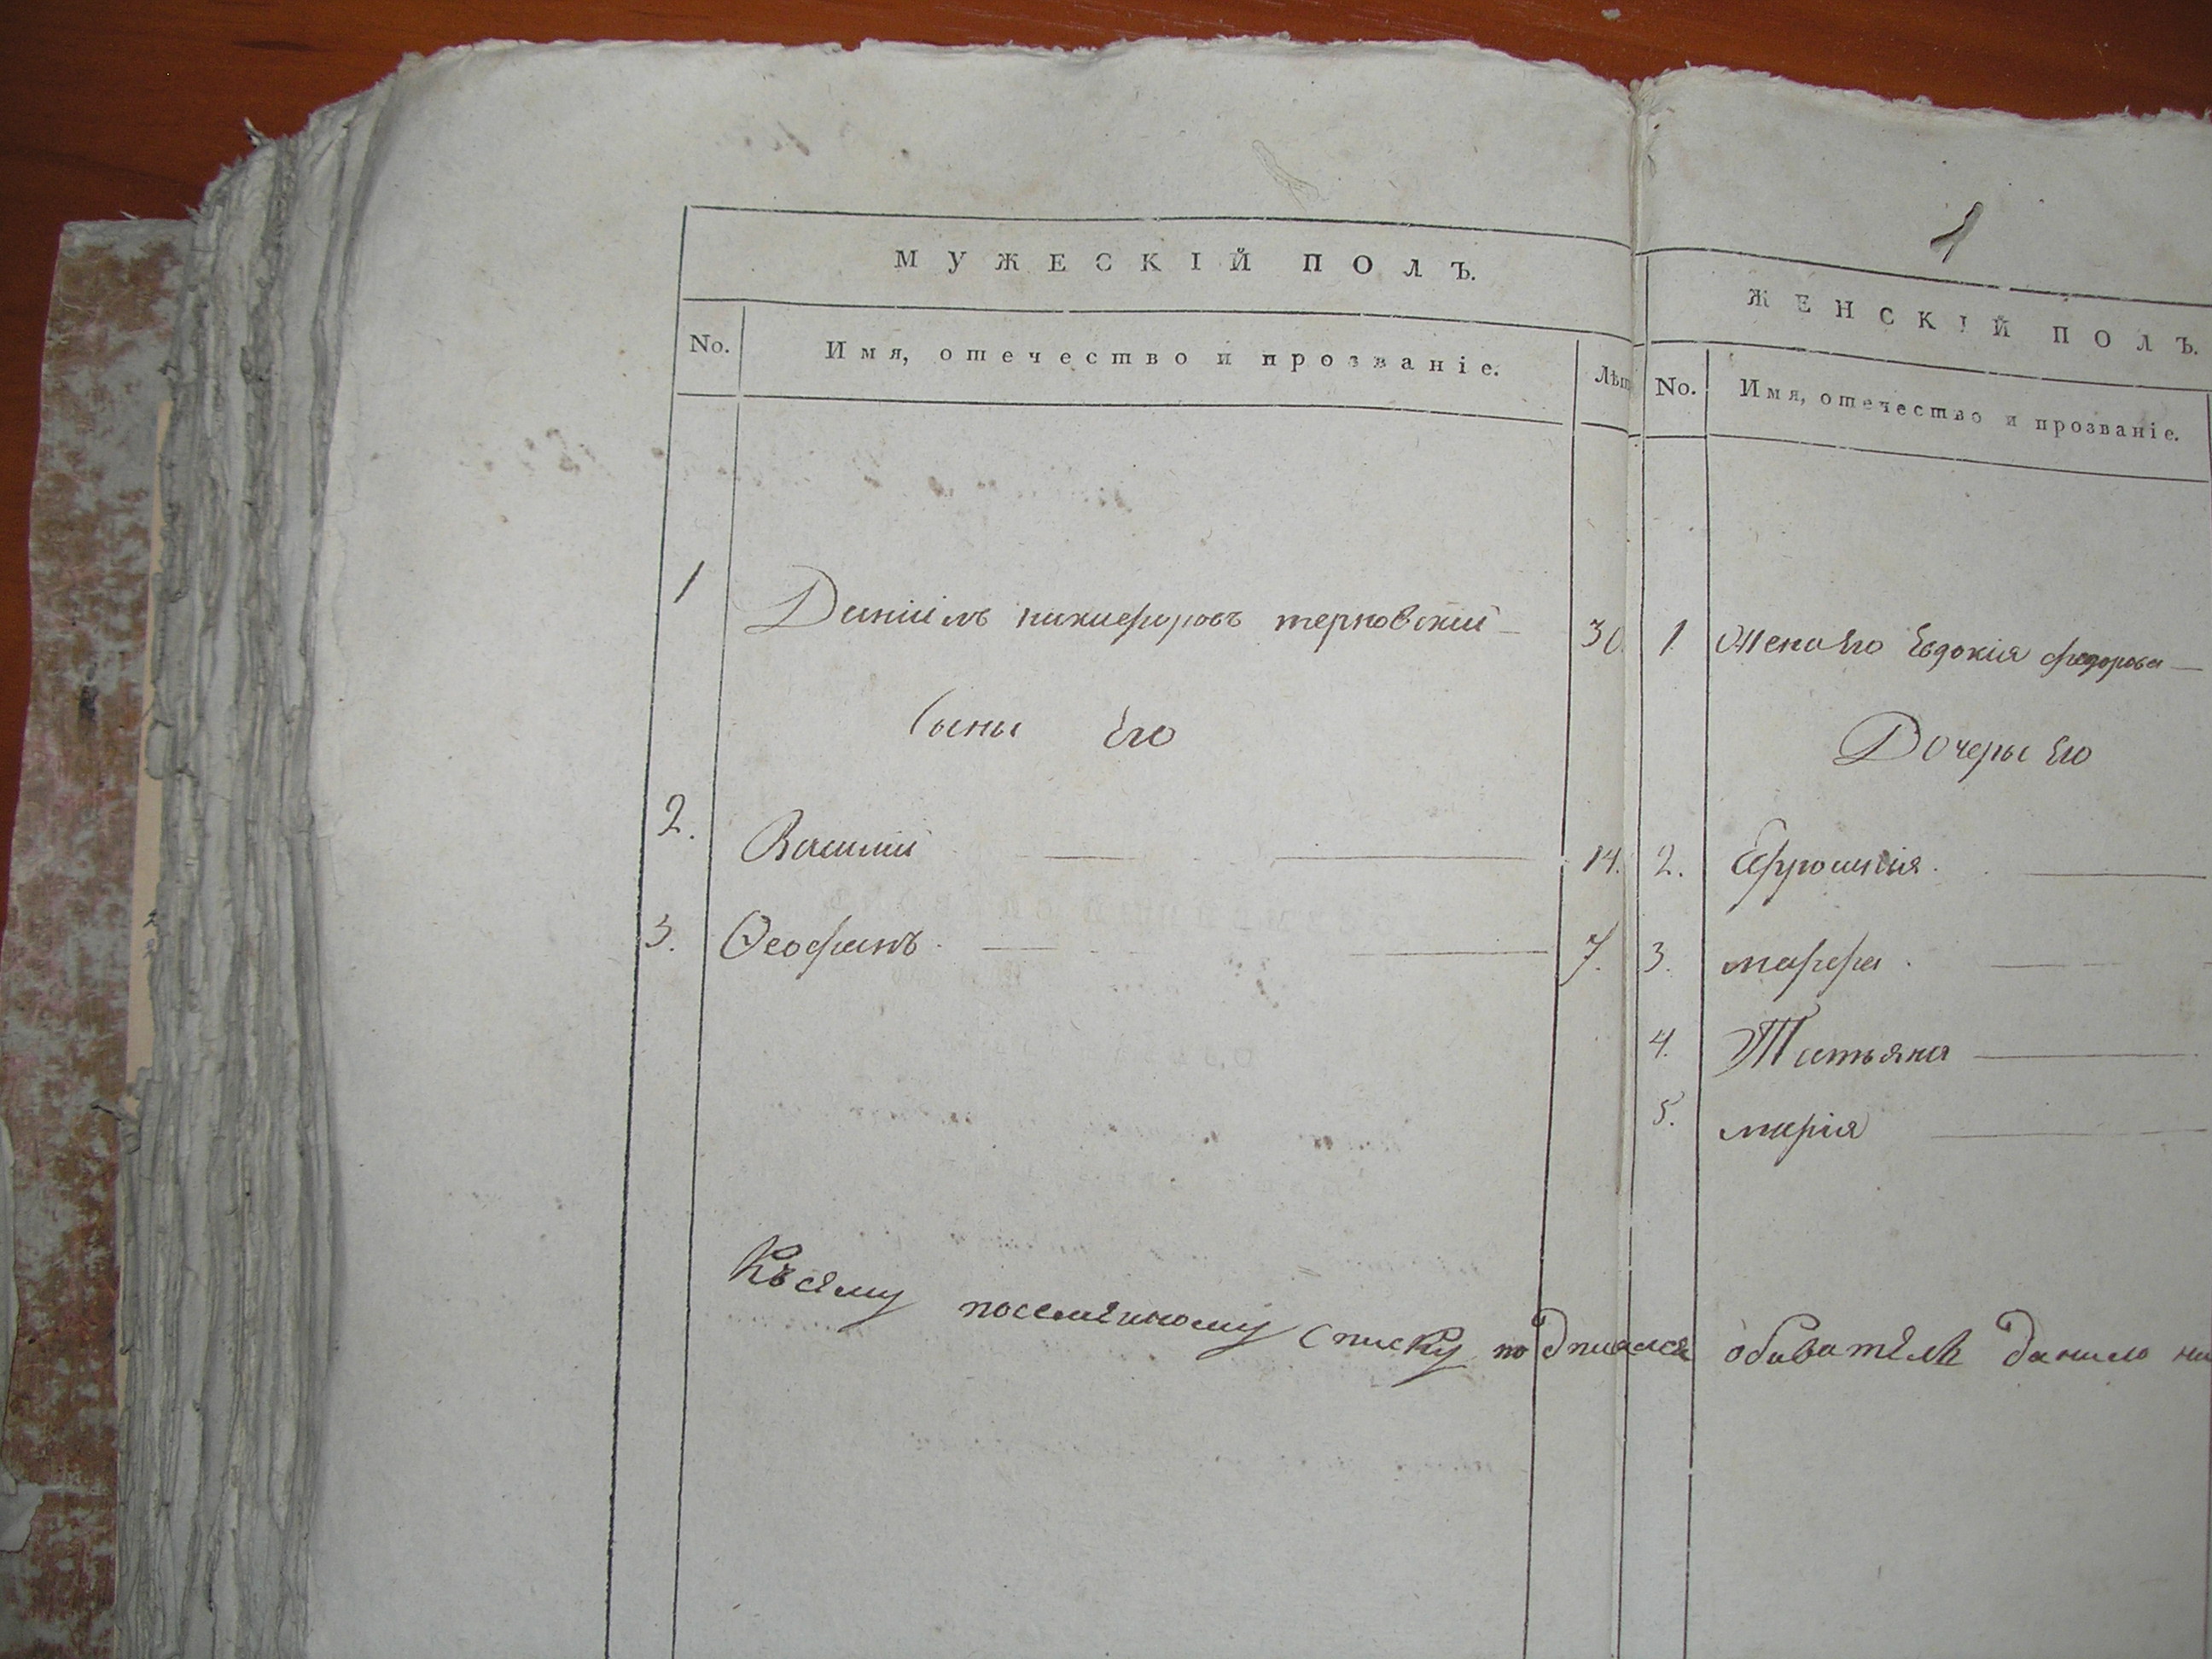 МУЖЕСКІЙ ПОЛЪ.
No. Имя, отечество и прозваніе. Лѣт
1 Даніилъ никифоровъ терновскій 30.
Сыны Его
2. Василій 14.
3. Ѳеофанъ 7.
ЖЕНСКІЙ ПОЛЪ.
No. Имя, отечество и прозваніе.
1 Жена Его Евдокія федорова
Дочеры Его
2. Ефросинія.
3. марфа.
4. Татьяна
5. марія
Къ сему посемейному списку подписался обыватель данило ни